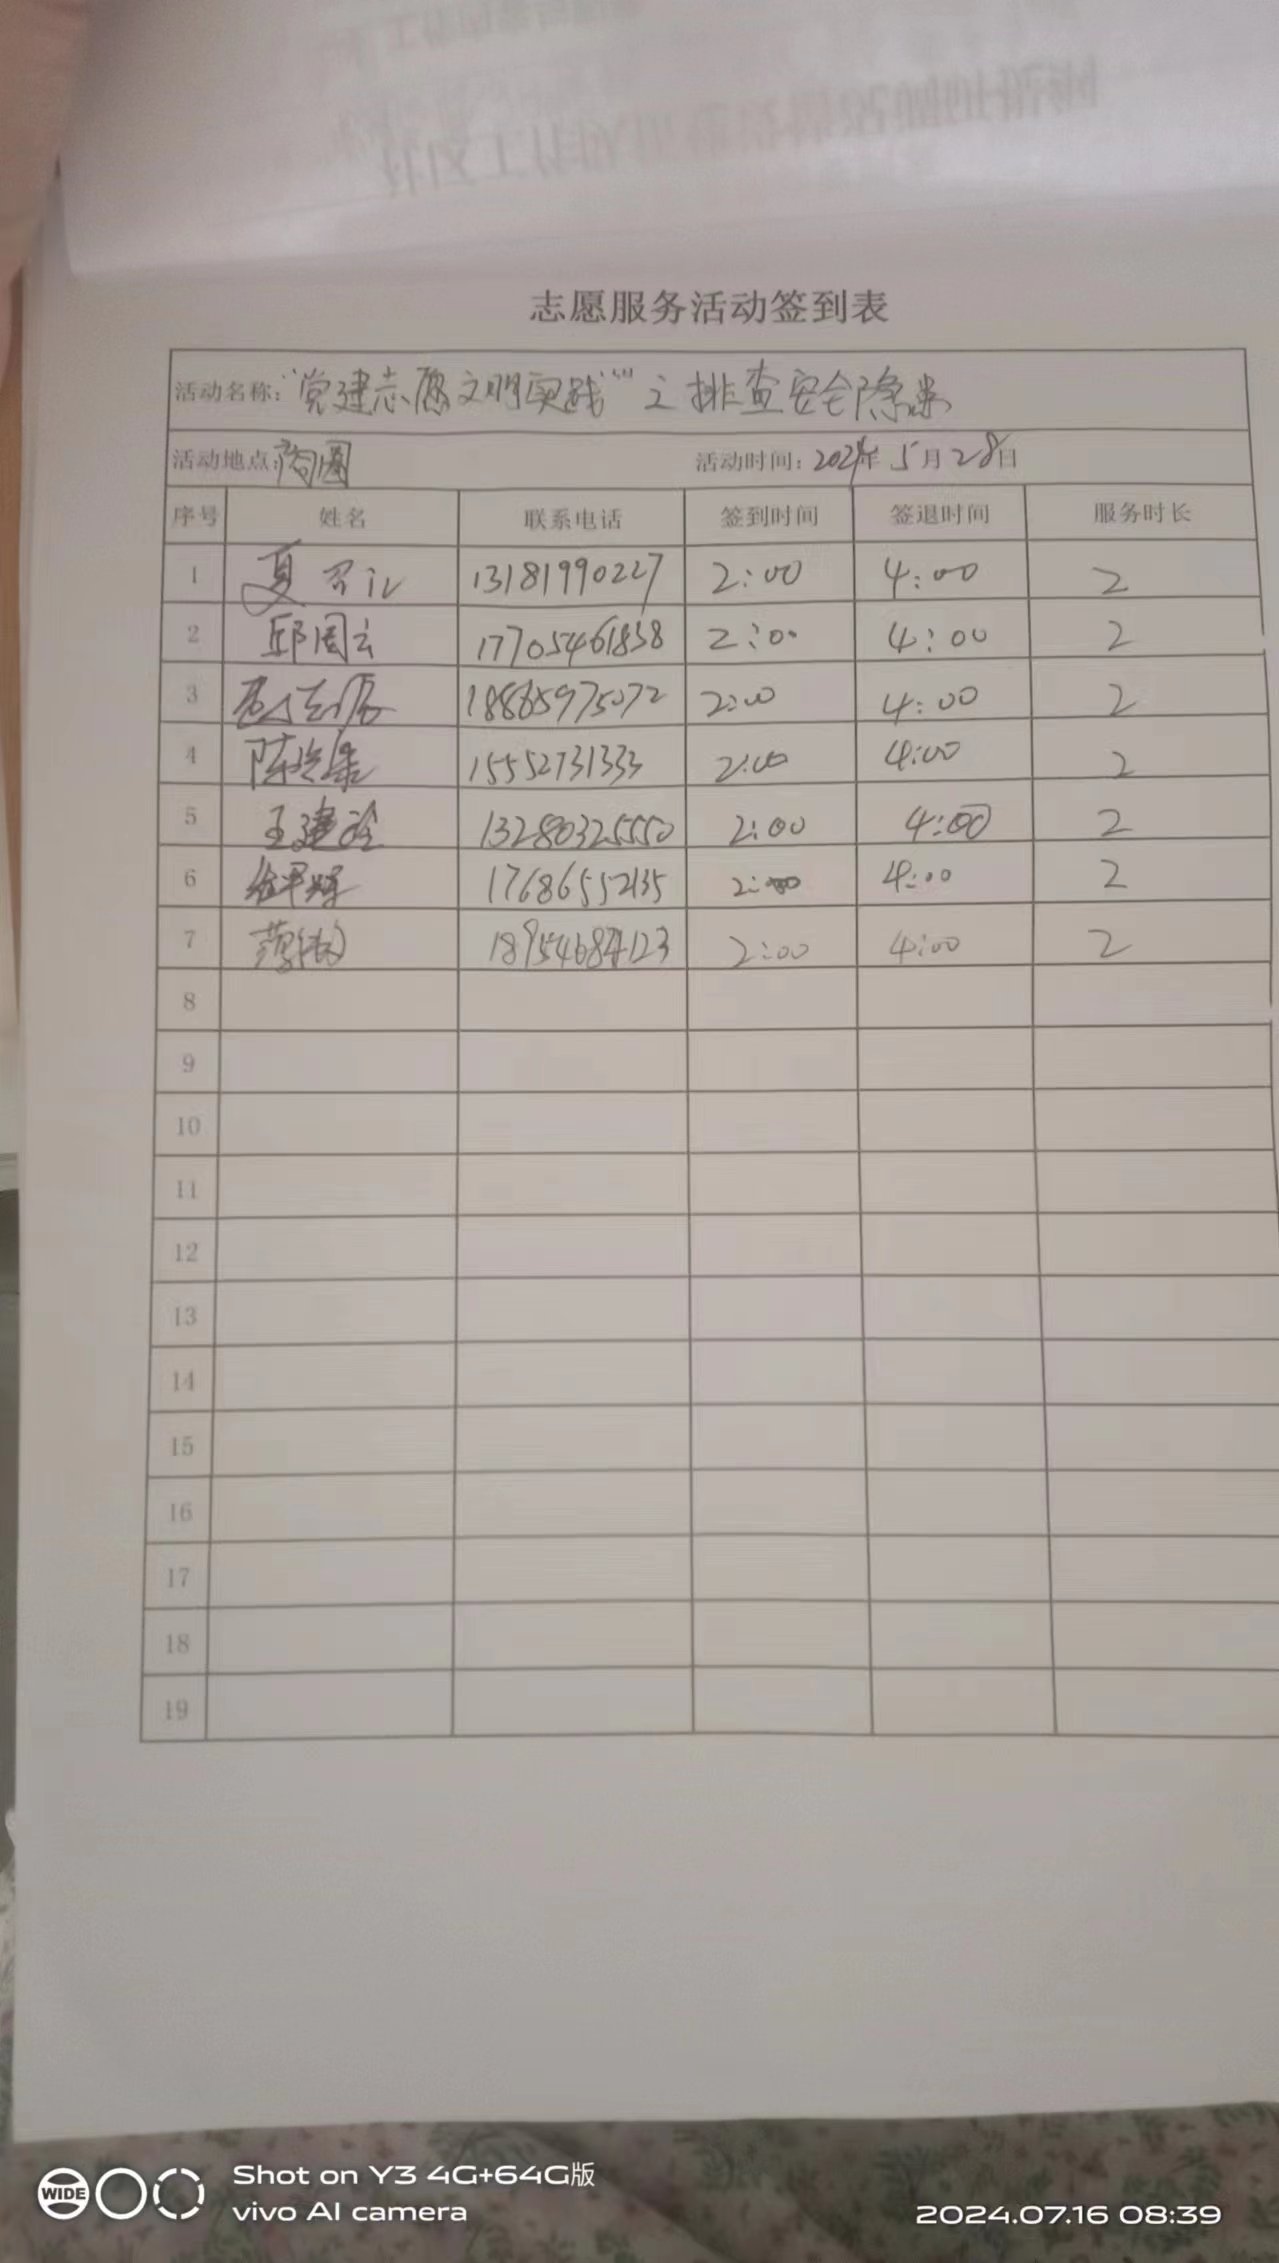 志愿服务活动签到表
活动名称:"党建志愿文明实践""之排查安全隐患
活动地点: 活动时间: 2024年 5月28日
序号 姓名 联系电话 签到时间 签退时间 服务时长
1 夏 13181990227 2:00 4:00 2
2 邱周云 17705461838 2:00 4:00 2
3 18865975072 2:00 4:00 2
4 陈 15552731333 2:00 4:00 2
5 王建 13280325550 2:00 4:00 2
6 17686552135 2:00 4:00 2
7 2:00 4:00 2
8
9
10
11
12
13
14
15
16
17
18
19
WIDE
Shot on Y3 4G+64G版
vivo AI camera
2024.07.16 08:39